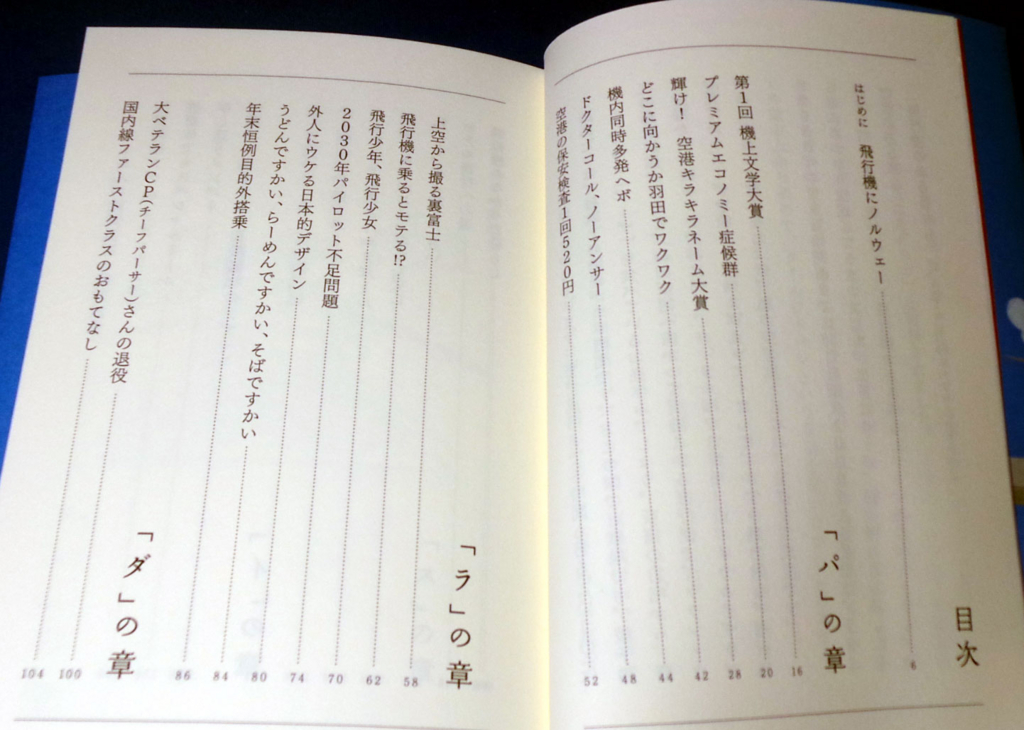 目次
はじめに　飛行機にノルウェー 6
「パ」の章
第1回 機上文学大賞 16
プレミアムエコノミー症候群 20
輝け!　空港キラキラネーム大賞 28
どこに向かうか羽田でワクワク 42
機内同時多発ヘボ 44
ドクターコール、ノーアンサー 48
空港の保安検査1回520円 52
「ラ」の章
上空から撮る裏富士 58
飛行機に乗るとモテる!? 62
飛行少年、飛行少女 70
2030年パイロット不足問題 74
外人にウケる日本的デザイン 80
うどんですかい、らーめんですかい、そばですかい 84
年末恒例目的外搭乗 86
「ダ」の章
大ベテランCP(チーフパーサー)さんの退役 100
国内線ファーストクラスのおもてなし 104